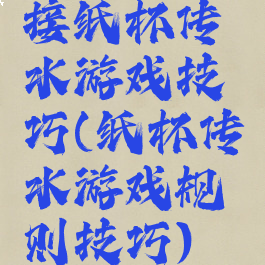 接纸杯传
水游戏技
巧(纸杯传
水游戏规
则技巧)